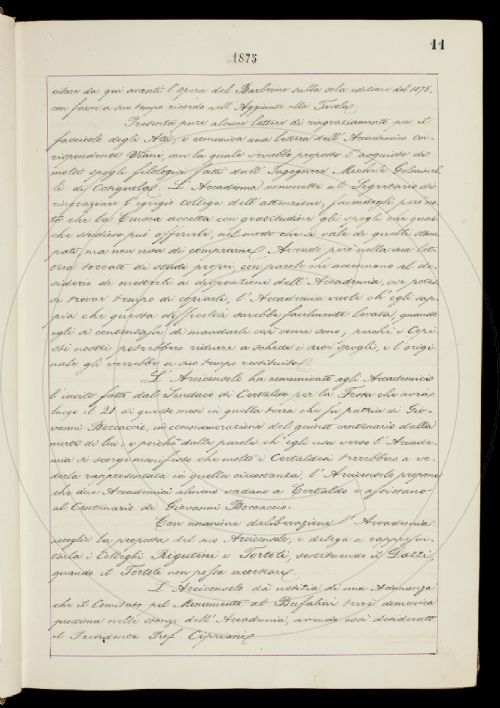 11
1875
citare da qui avanti l'opera del Barberino sulla sola edizione del 1875,
con farne a suo tempo ricordo nell'Aggiunta alla Tavola.
Presenta pure alcune lettere di ringraziamento per il
fascicolo degli Atti, e comunica una lettera dell'Accademico cor-
rispondente Viani, con la quale verrebbe proposto l'acquisto di
molti spogli filologici fatti dall'Ingegnere Michele
di. L'Accademia commette al Segretario di
ringraziare l'egregio collega dell'attenzione, facendogli però no-
to che la Crusca accetta con gratitudine gli spogli che qual-
che studioso può offrirle, nel modo che si vale di quelle stam-
pati, ma non usa di comprarne. Avendo però nella sua let-
tera toccato di studi propri, con parole che accennano al de-
siderio di metterli a disposizione dell'Accademia, ove potes-
se trovar tempo di copiarli, l'Accademia vuole ch'egli sap-
pia che questa difficoltà sarebbe facilmente levata, quando
egli si contentasse di mandarli così come sono; perchè i Copi-
sti nostri potrebbero ridurre a schede i suoi spogli, e l'origi-
nale gli verrebbe a suo tempo restituito.
L'Arciconsolo ha comunicato agli Accademici
l'invito fatto dal Sindaco di Certaldo per la Festa che avrà
luogo il 21 di questo mese in quella terra che fu patria di Gio-
vanni Boccaccio, in commemorazione del quinto centenario dalla
morte di lui; e poichè dalle parole ch'egli usa verso l'Accade-
mia si scorge manifesto che molto i Certaldesi terrebbero a ve-
derla rappresentata in quella circostanza, l'Arciconsolo propone
che due Accademici almeno vadano a Certaldo e assistano
al Centenario di Giovanni Boccaccio.
Con unanime deliberazione l'Accademia
accoglie la proposta del suo Arciconsolo, e delega a rappresen-
tarla i Colleghi Rigutini e Tortoli, sostituendo il Dazzi,
quando il Tortoli non possa accettare.
L'Arciconsolo dà notizia di una Adunanza
che il Comitato pel Monumento al Bufalini terrà domenica
prossima nelle stanze dell'Accademia, avendo così desiderato
il Presidente Prof. Cipriani.